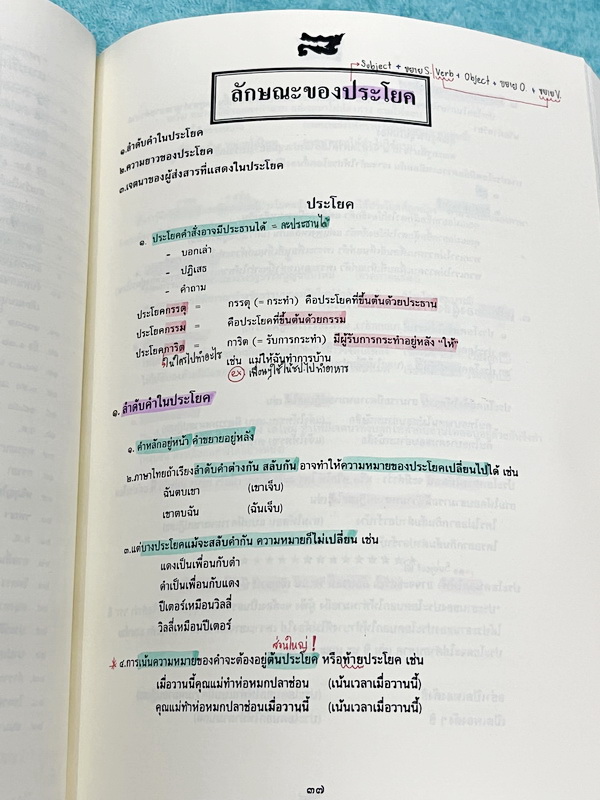 Subject + ขยาย S. Verb + Object + ขยาย O. + ขยาย V.
ลักษณะของประโยค
๑.ลำดับคำในประโยค
๒.ความยาวของประโยค
๓.เจตนาของผู้ส่งสารที่แสดงในประโยค
ประโยค
๑. ประโยคคำสั่งอาจมีประธานได้ = ละประธานได้
- บอกเล่า
- ปฏิเสธ
- คำถาม
ประโยคกรรตุ = กรรตุ (= กระทำ) คือประโยคที่ขึ้นต้นด้วยประธาน
ประโยคกรรม = คือประโยคที่ขึ้นต้นด้วยกรรม
ประโยคการิต = การิต (= รับการกระทำ) มีผู้รับการกระทำอยู่หลัง "ให้"
ให้ใครไปทำอะไร เช่น แม่ให้ฉันทำการบ้าน
ex ไปทำอาหาร
๑. ลำดับคำในประโยค
๑. คำหลักอยู่หน้า คำขยายอยู่หลัง
๒.ภาษาไทยถ้าเรียงลำดับคำต่างกัน สลับกัน อาจทำให้ความหมายของประโยคเปลี่ยนไปได้ เช่น
ฉันตบเขา (เขาเจ็บ)
เขาตบฉัน (ฉันเจ็บ)
๓.แต่บางประโยคแม้จะสลับคำกัน ความหมายก็ไม่เปลี่ยน เช่น
แดงเป็นเพื่อนกับดำ
ดำเป็นเพื่อนกับแดง
ปีเตอร์เหมือนวิลลี่
วิลลี่เหมือนปีเตอร์
ส่วนใหญ่!
๔.การเน้นความหมายของคำจะต้องอยู่ต้นประโยค หรือท้ายประโยค เช่น
เมื่อวานนี้คุณแม่ทำห่อหมกปลาช่อน (เน้นเวลาเมื่อวานนี้)
คุณแม่ทำห่อหมกปลาช่อนเมื่อวานนี้ (เน้นเวลาเมื่อวานนี้)
๓๗